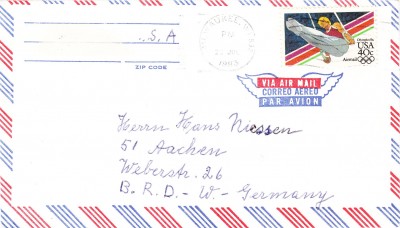 ..S.A
ZIP CODE
PM
1983
Olympics 84
USA
40c
Airmail
VIA AIR MAIL
CORREO AEREO
PAR AVION
Herrn Hans Niessen
51 Aachen
Weberstr. 26
B.R.D.-W.-Germany